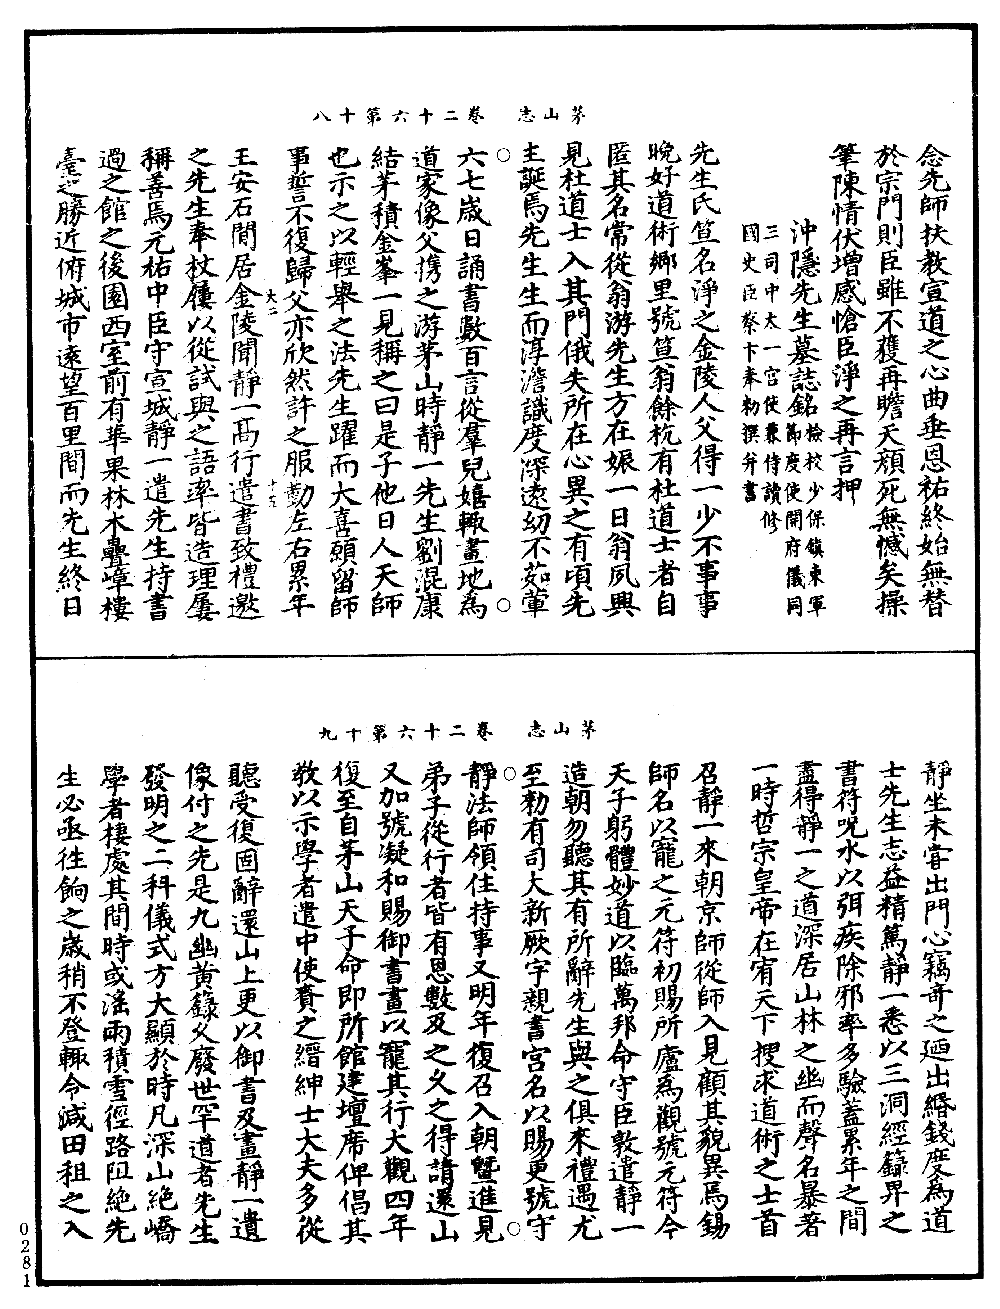 茅山志　卷二十六第十八
念先師扶教宣道之心曲垂恩祐終始無替
於宗門則臣雖不獲再瞻天顏死無憾矣操
筆陳情伏增感愴臣淨之再言押
沖隱先生墓誌銘檢校少保鎮東軍節度使開府儀同
三司中太一宮使兼侍讀修
國史臣蔡卞奉勑撰并書
先生氏笪名淨之金陵人父得一少不事事
晚好道術鄉里號笪翁餘杭有杜道士者自
匿其名常從翁游先生方在娠一日翁夙興
見杜道士入其門俄失所在心異之有頃先
生誕焉先生生而淳澹識度深遠幼不茹葷
六七歲日誦書數百言從羣兒嬉輒畫地為
道家像父攜之游茅山時靜一先生劉混康
結茅積金峯一見稱之曰是子他日人天師
也示之以輕舉之法先生躍而大喜願留師
事誓不復歸父亦欣然許之服勤左右累年
王安石閒居金陵聞靜一高行遣書致禮邀
之先生奉杖屨以從試與之語率皆造理屢
稱善焉元祐中臣守宣城靜一遣先生持書
過之館之後園西室前有華果林木疊嶂樓
臺之勝近俯城市遠望百里間而先生終日
茅山志　卷二十六第十九
靜坐未嘗出門心竊奇之廼出緡錢度為道
士先生志益精篤靜一悉以三洞經籙畀之
書符呪水以弭疾除邪率多驗蓋累年之間
盡得靜一之道深居山林之幽而聲名暴著
一時哲宗皇帝在宥天下搜求道術之士首
召靜一來朝京師從師入見顧其貌異焉錫
師名以寵之元符初賜所廬為觀號元符今
天子躬體妙道以臨萬邦命守臣敦遣靜一
造朝勿聽其有所辭先生與之俱來禮遇尤
至勑有司大新厥宇親書宮名以賜更號守
靜法師領住持事又明年復召入朝暨進見
弟子從行者皆有恩數及之久之得請還山
又加號凝和賜御書畫以寵其行大觀四年
復至自茅山天子命即所館建壇席俾倡其
教以示學者遣中使賚之縉紳士大夫多從
聽受復固辭還山上更以御書及畫靜一遺
像付之先是九幽黃籙久廢世罕道者先生
發明之二科儀式方大顯於時凡深山絕嶠
學者棲處其間時或滛雨積雪徑路阻絕先
生必亟徃餉之歲稍不登輒令減田租之入
0281